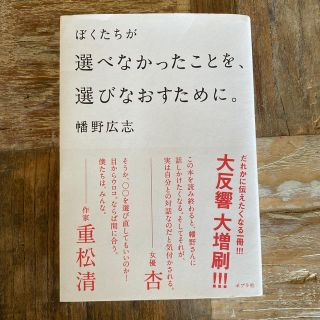 ぼくたちが
選べなかったことを、
選びなおすために。
幡野広志
だれかに伝えたくなる一冊!!!
大反響 大増刷!!!
この本を読み終わると、幡野さんに
話しかけたくなる。そしてそれが、
実は自分との対話なのだと気付かされる。
──女優 杏
そうか、〇〇を選び直してもいいのか──
目からウロコ、ならば間に合う。
僕たちは、みんな。
──作家 重松清
ポプラ社